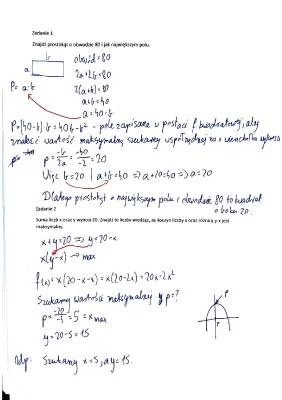 Zadanie 1
Znajdź prostokąt o obwodzie 80 i jak największym polu.
b
a
obwód = 80
P = a·b
2a+2b = 80
2(a+b) = 80
a+b = 40
a = 40-b
P=(40-b)·b = 40b-b² - pole zapisane w postaci f. kwadratowej, aby
znaleźć wartość maksymalną szukamy współrzędnej na x wierzchołka
p = -b/2a = -40/-2 = 20
Więc b=20 | a+b=40 => a+20=40 => a=20
Dlatego prostokąt o największym polu i obwodzie 80 to kwadrat
o boku 20.
Zadanie 2
Suma liczb x oraz y wynosi 20. Znajdź te liczby wiedząc, że iloczyn liczby x oraz różnicy y-x jest
maksymalny.
x+y=20 => y=20-x
x(y-x) → max
f(x) = x(20-x-x) = x(20-2x) = 20x-2x²
Szukamy wartości maksymalnej p=?
p = -20/-4 = 5 = x max
y = 20-5 = 15
P
Odp: Szukany x=5, a y=15.